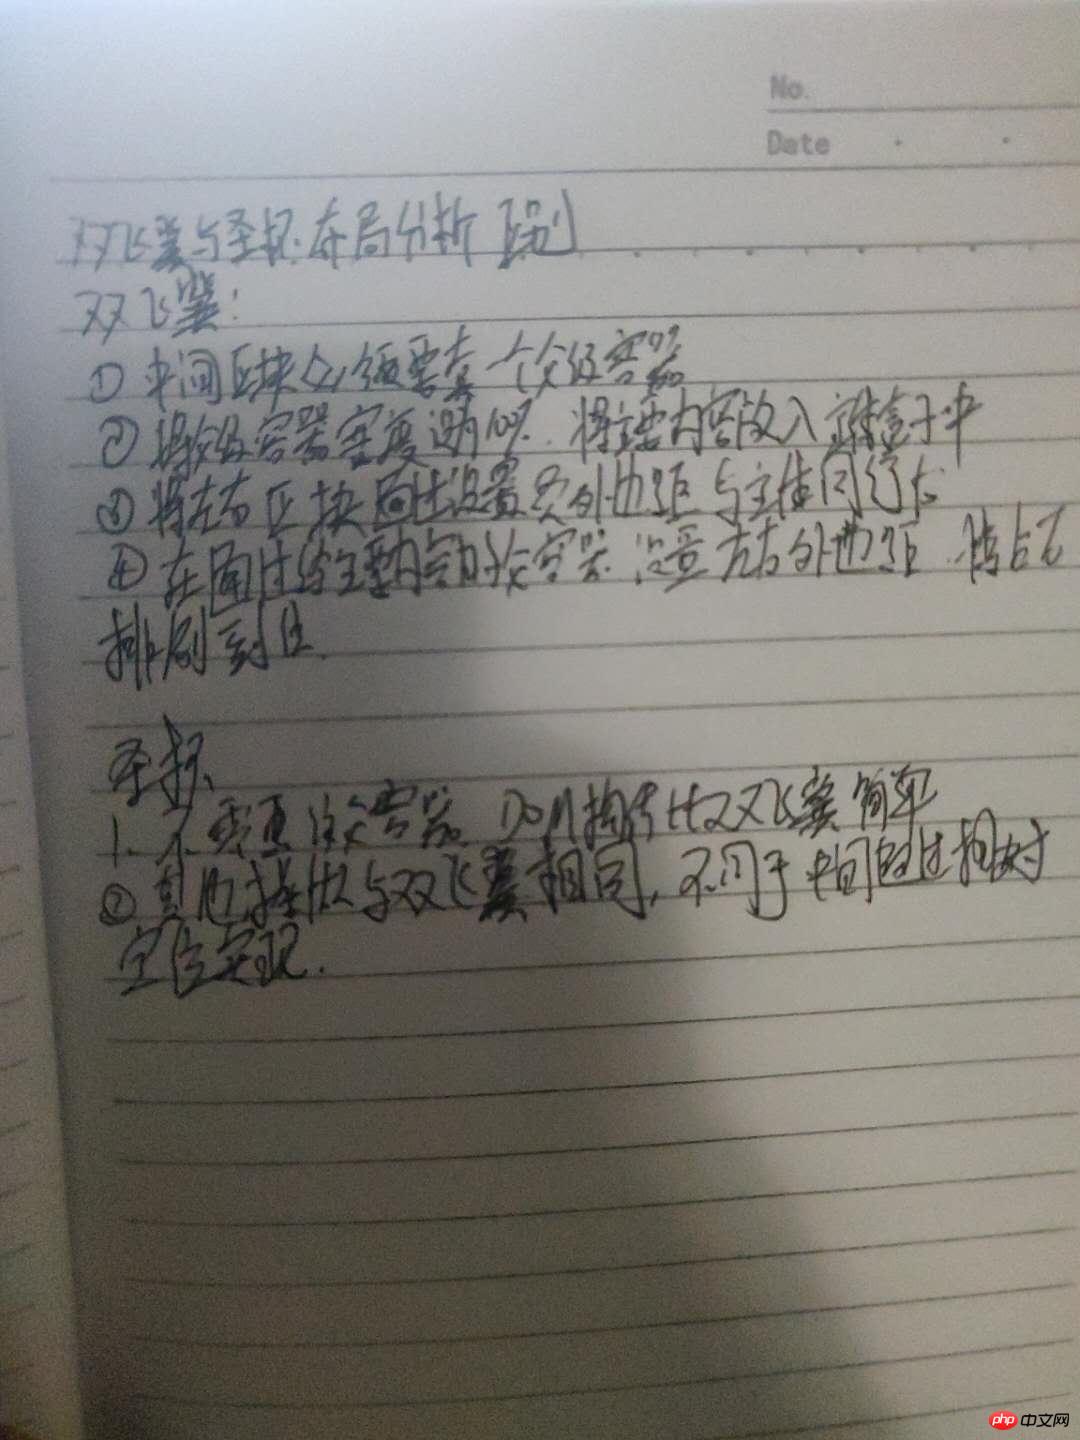 No.
Date
双飞翼与圣杯布局分析 区别
双飞翼:
① 中间区块必须要套一个父级容器
② 将父级容器宽度 将主要内容放入盒子中
③ 将左右区块通过设置负外边距与主体同行
④ 在通过给主要内容的父容器 设置左右外边距
排列
圣杯
1. 不需要 父容器 DOM结构比双飞翼简单
② 其他 与双飞翼相同,不同于中间通过相对
定位实现.
php 中文网